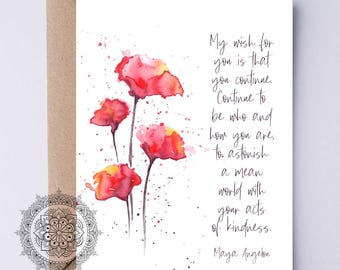 My wish for
you is that
you continue.
Continue to
be who and
how you are,
to astonish
a mean
world with
your acts
of kindness.
Maya Angelou